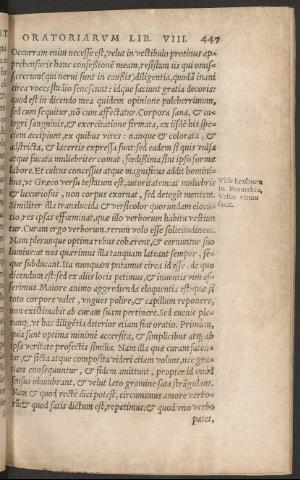 ORATORIARVM LIB. VIII. 447
Occurram enim necesse est, velut in vestibulo protinus ap-
prehensuris hanc confessionẽ meam, resistam iis qui omis-
sa rerum (qui nerui sunt in causis) diligentia, quodã inani
circa voces studio senescunt: idque faciunt gratia decoris:
quod est in dicendo mea quidem opinione pulcherrimum,
sed cum sequitur, nõ cum affectatur. Corpora sana, & in-
tegri sanguinis, & exercitatione firmata, ex iisdẽ his spe-
ciem accipiunt, ex quibus vires: nanque & colorata, &
adstricta, & lacertis expressa sunt: sed eadem si quis vulsa
atque fucata muliebriter comat, fœdissima sint ipso formæ
labore. Et cultus concessus atque magnificus addit homini-
bus, vt Græco versu testatum est, autoritatem: at muliebris
& luxuriosus, non corpus exornat, sed detegit mentem.
Similiter illa translucida & versicolor quorundam elocu-
tio, res ipsas effœminat, quæ illo verborum habitu vestiun
tur. Curam ergo verborum, rerum volo esse solicitudinem.
Nam plerunque optima rebus cohærent, & cernuntur suo
lumine: at nos quærimus illa tanquam lateant semper, se-
que subducant. Ita nunquam putamus circa id esse, de quo
dicendum est: sed ex aliis locis petimus, & inuentis vim af-
ferimus. Maiore animo aggredienda eloquentia est: quæ si
toto corpore valet, vngues polire, & capillum reponere,
non existimabit ad curam suam pertinere. Sed euenit ple-
runq;, vt hac diligẽtia deterior etiam fiat oratio. Primum,
quia sunt optima minimè accersita, & simplicibus atq; ab
ipsa veritate profectis similia. Nam illa quæ curam faten-
tur, & ficta atque composita videri etiam volunt, nec gra-
tiam consequuntur, & fidem amittunt, propter id quòd
sensus obumbrant, & velut læto gramine sata strãgulant.
Nam & quod rectè dici potest, circumimus amore verbo-
rũ: & quod satis dictum est, repetimus: & quod vno verbo
patet,
Vide Erasmum
in Prouerbio,
Vestis virum
facit.